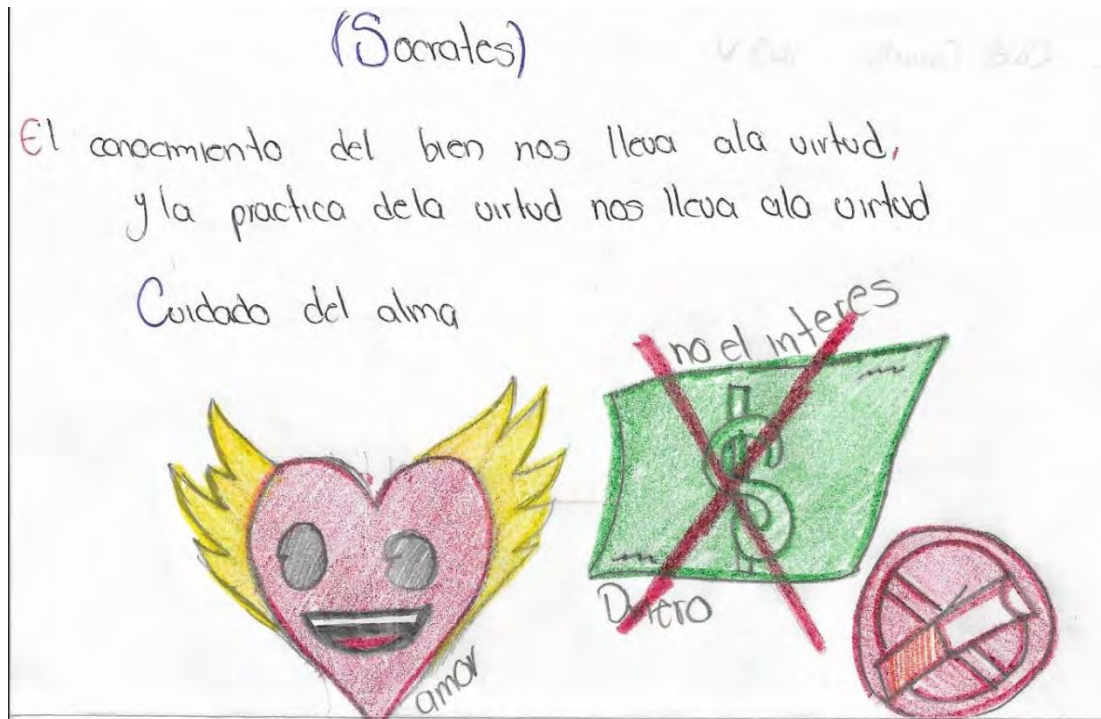 (Socrates)
El conocimiento del bien nos lleva ala virtud,
y la practica dela virtud nos lleva ala virtud
Cuidado del alma
no el interes
$
Dinero
amor